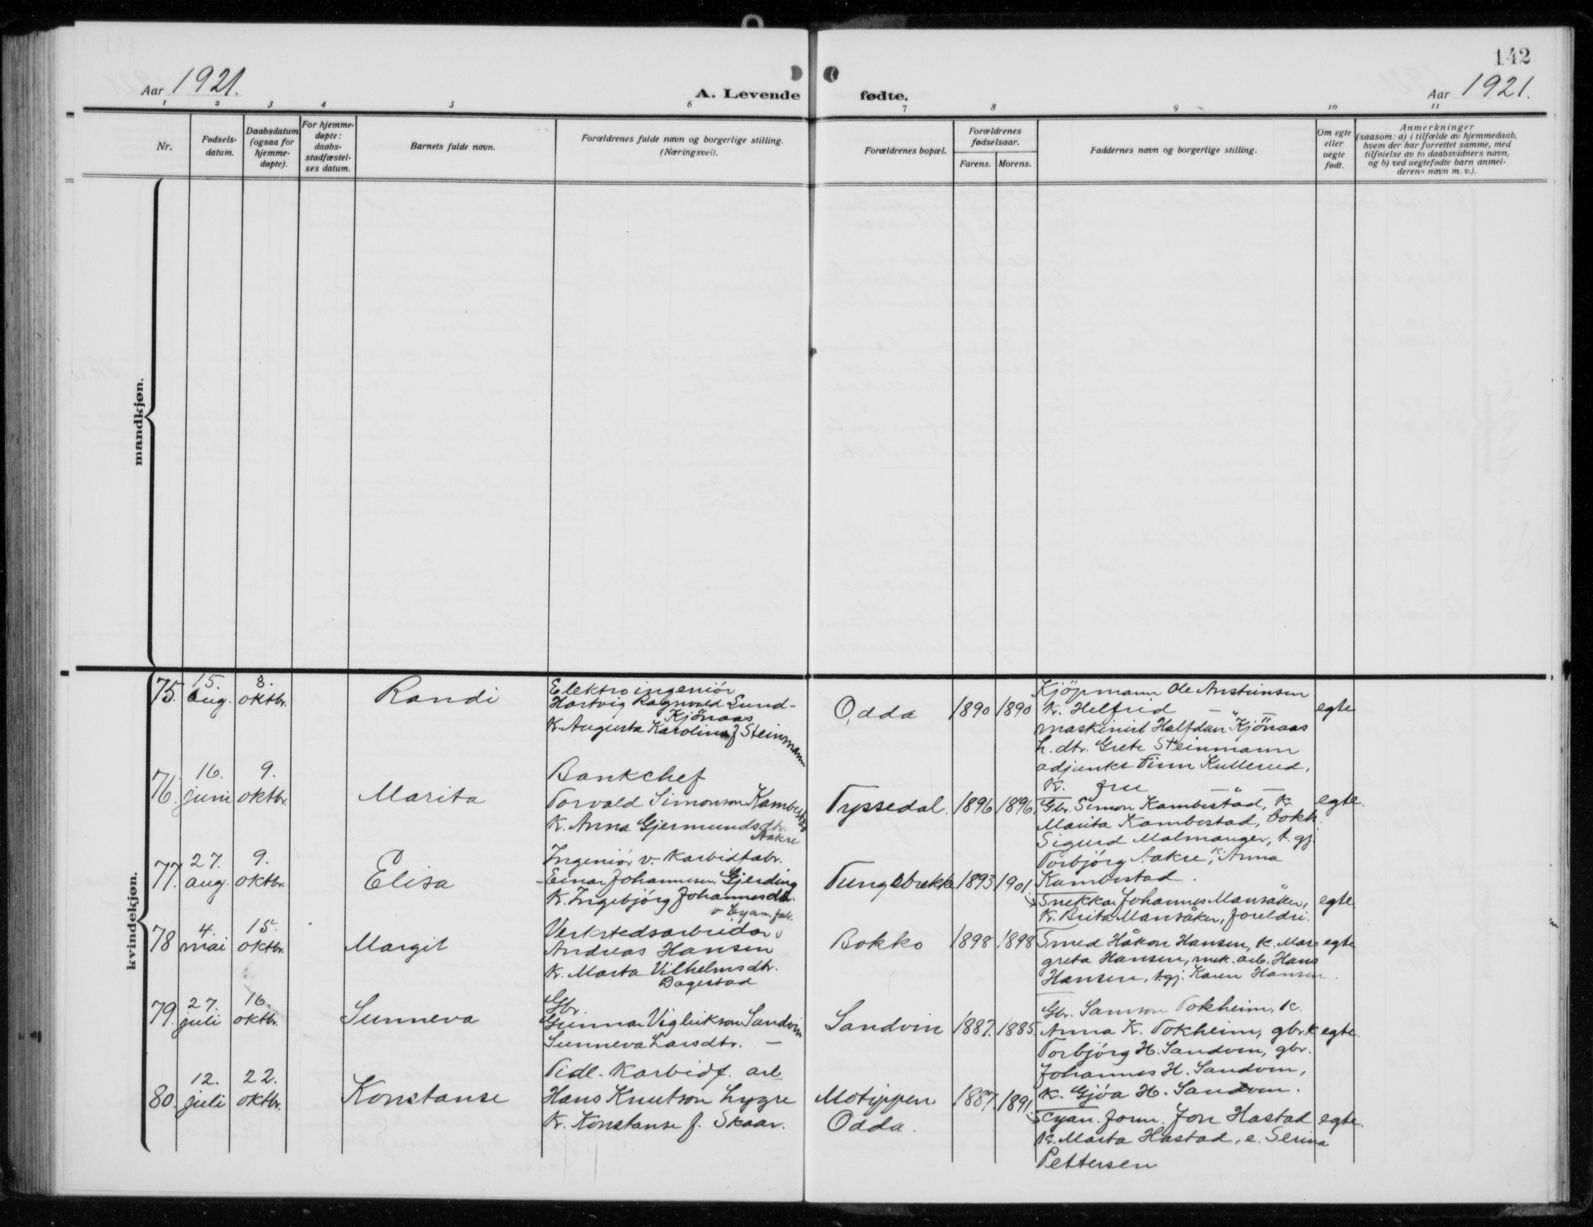 142
Aar 1921.
A. Levende fødte.
Aar 1921.
1 2 3 4 5 6 7 8 9 10 11
Nr.
Fødsels-
datum.
Daabsdatum
(ogsaa for
hjemme-
døpte).
For hjemme-
døpte:
daabs-
stadfæstel-
ses datum.
Barnets fulde navn.
Forældrenes fulde navn og borgerlige stilling.
(Næringsvei).
Forældrenes bopæl.
Forældrenes
fødselsaar.
Farens. Morens.
Faddernes navn og borgerlige stilling.
Om egte
eller
uegte
født.
Anmerkninger
(saasom: a) i tilfælde av hjemmedaab,
hvem der har forrettet samme, med
tilføielse av to daabsvidners navn,
og b) ved uegtefødte barn anmel-
derens navn m. v.).
mandkjøn.
kvindekjøn.
75. 15. aug. 8. oktbr. Randi
Elektroingeniör
Hartvig Ragnvald Lund-
Kjönaas
k. Augusta Karolina f Steinmann
Odda 1890 1890
Kjöpmann Ole Anstensen
k. Helfrid — " —
maskinist Halfdan Kjönaas
h. dtr. Grete Steinmann
adjunkt Finn Kullerud,
k. fru — " —
egte
76. 16. juni 9. oktbr. Marita
Bankchef
Torvald Simonson Kambestad
k. Anna Gjermundsdtr.
Aakre
Tyssedal. 1896 1896.
Gbr. Simon Kambestad, k.
Marita Kambestad, bokh.
Sigurd Malmanger, t. gj.
Torbjörg Aakre, k. Anna
Kambestad.
egte.
77. 27. aug. 9. oktbr. Elisa
Ingeniör v. Karbidfabr.
Einar Johannesen Gjerding
k. Ingebjörg Johannesdtr.
1893 1901
Snekkar Johannes Mansåker,
k. Brita Mansåker, foreldri.
egte.
78 4. mai 15. oktbr. Margit
v Cyan. fab.
Verkstedsarbeidar
Andreas Hansen
k. Marta Vilhelmsdtr.
Dagestad
Bokko 1898 1898
Smed Håkon Hansen, k. Mar-
greta Hansen, mek. arb. Hans
Hansen, t.gj. Karen Hansen.
egte
79. 27. juli 16. oktbr. Sunneva
Gbr.
Gunnar Vigleikson Sandvin
Sunneva Larsdtr. —
Sandvin 1887. 1885
Gbr. Samson Tokheim, k.
Anna K. Tokheim, gbr.k
Torbjörg H. Sandven, gbr.
Johannes H. Sandven,
k. Gjöa H. Sandven.
egte.
80. 12. juli 22. oktbr. Konstanse
Tidl. Karbidf. arb
Hans Knutson Lygre
k. Konstanse f. Skaar.
Motippen
Odda. 1887. 1891.
Cyan. form. Jon Hastad
k. Marta Hastad, e. Serina
Pettersen
egte.